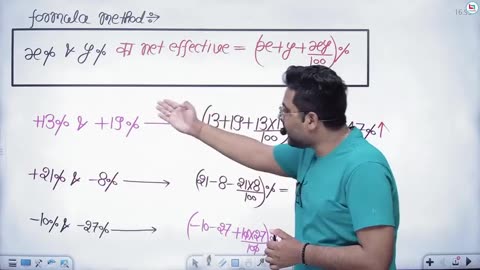 formula method :-
x% & y% का net effective = (x+y+xy/100)%
+13% & +19% → (13+19+13×1 /100 7% ↑
+21% & -8% → (21-8-21×8/100)% =
-10% & -27% → (-10-27+10×27/100)